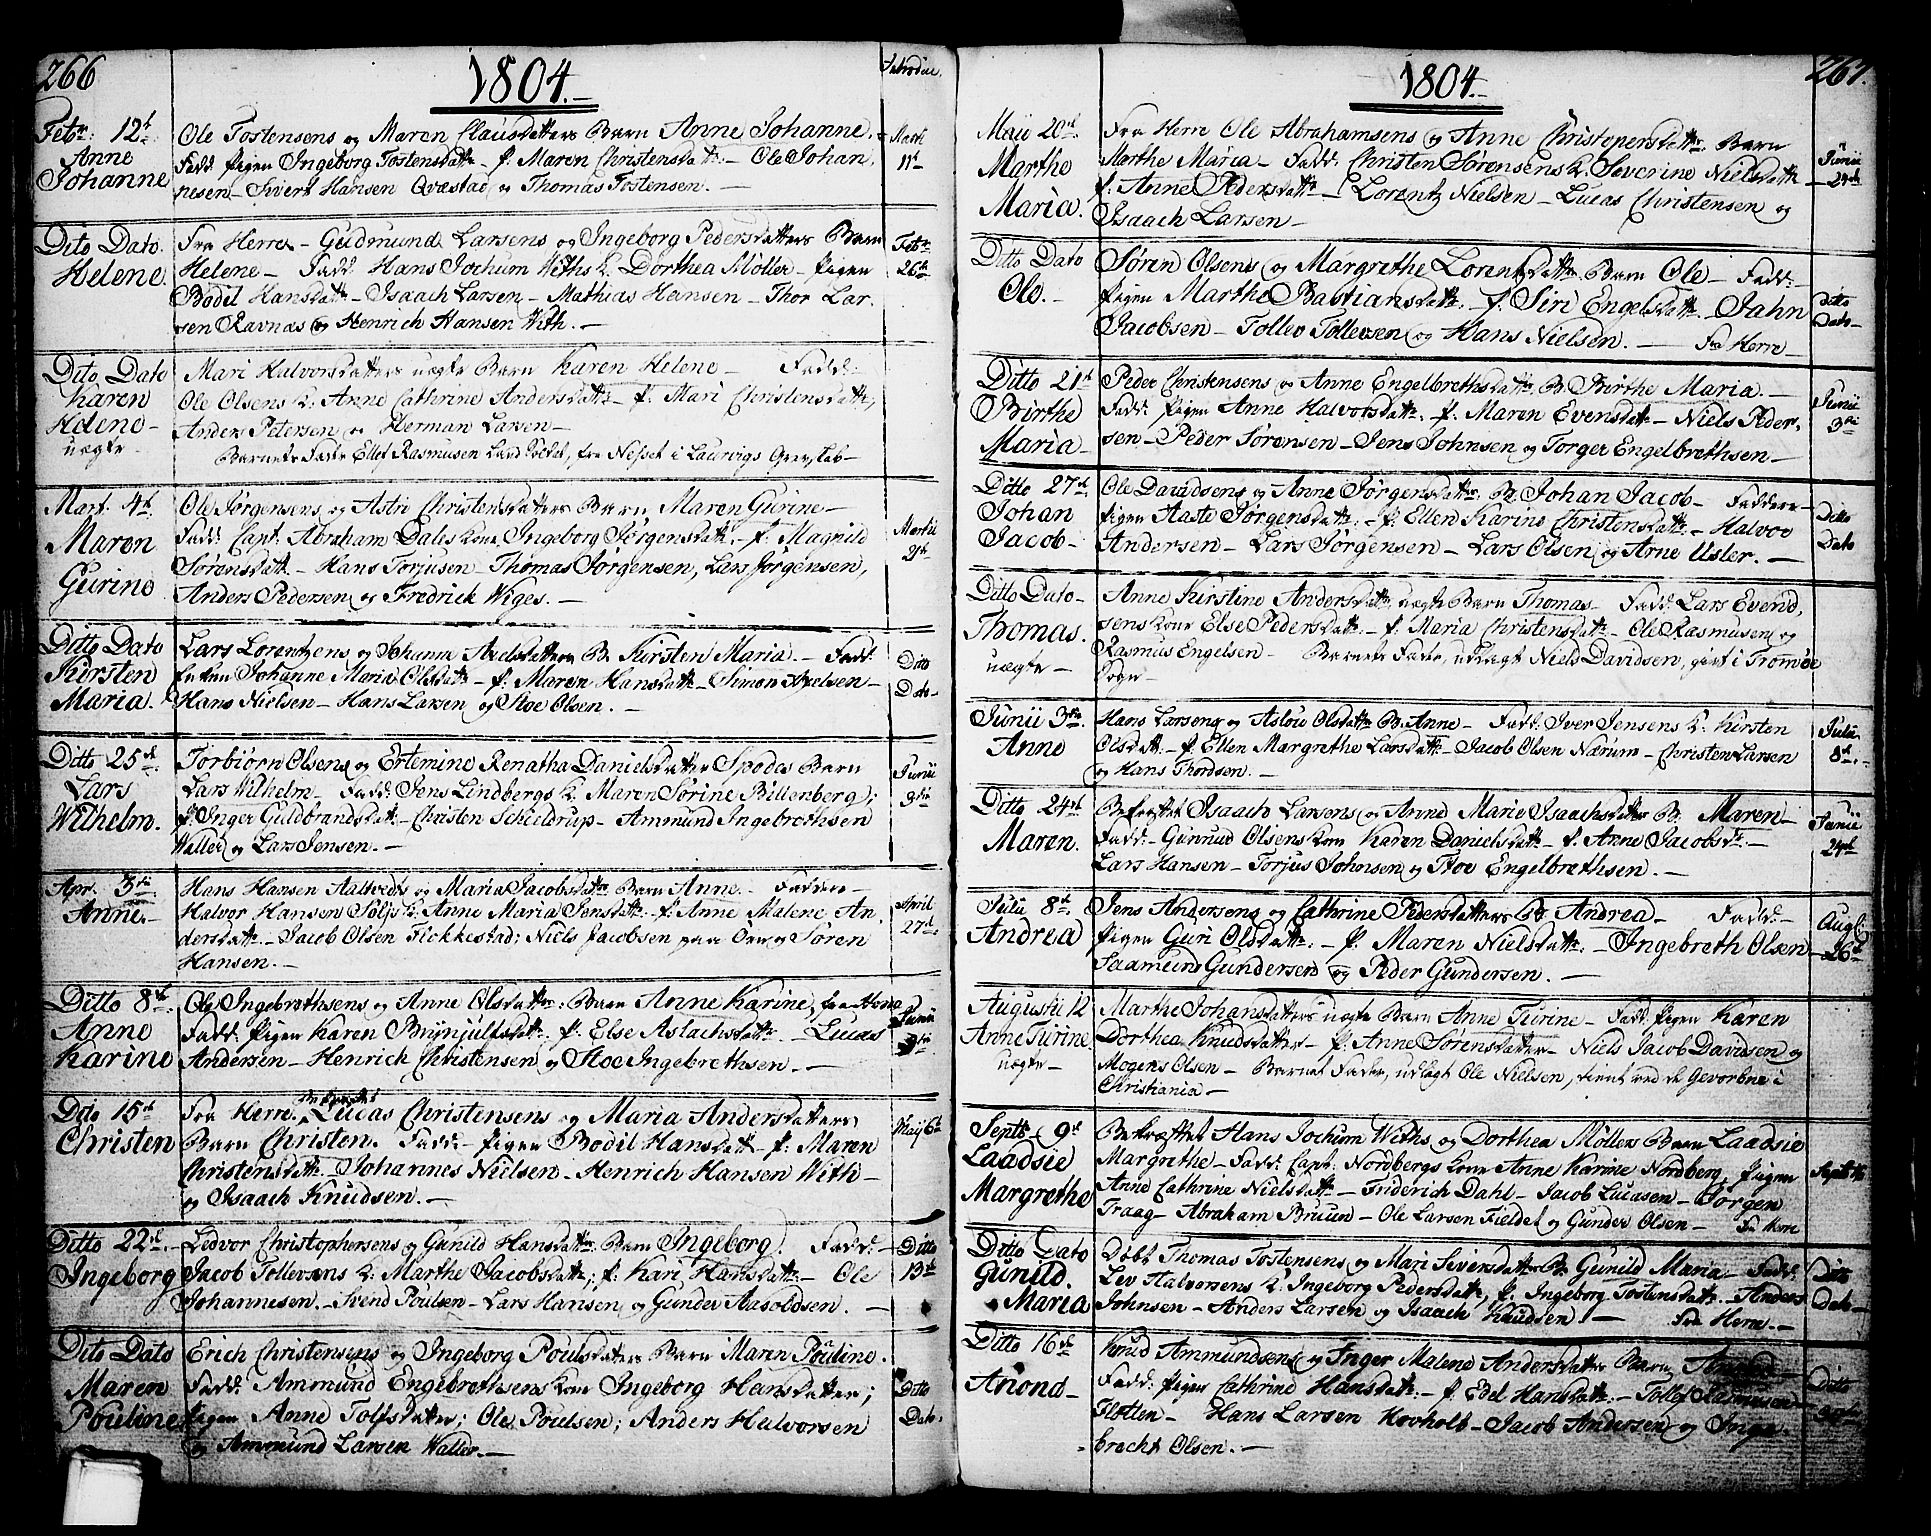 266
1804.
Introduc.
Febr: 12t
Anne
Johanne
Ole Tostensens og Maren Clausdatters Barn Anne Johanne.
Fadd: Pigen Ingeborg Tostensdatt: – P. Maren Christensdatt: – Ole Johan-
nesen – Sivert Hansen Qvæstad og Thomas Tostensen. –
Marti
11t
Dito Dato.
Helene.
Fra Herre – Gudmund Larsens og Ingeborg Pedersdatters Barn
Helene – Fadd: Hans Jochum Withs K. Dorthea Møller – Pigen
Bodil Hansdatt: – Isaach Larsen – Mathias Hansen – Thor Lar-
sen Ravnæs og Henrich Hansen With. –
Febr:
26de
Dito Dato
Karen
Helene –
uægte
Mari Halvorsdatters uægte Barn Karen Helene – Fadd:
Ole Olsens K: Anne Cathrine Andersdatt: – P. Mari Christensdatt;
Anders Petersen og Herman Larsen –
Barnets Fader Ellef Rasmusen Land Soldat, fra Nesset i Laurvigs Grevskab –
Mart. 4t.
Maren
Gurine
Ole Jørgensens og Astri Christensdatters Barn Maren Gurine –
Fadd: Capt: Abraham Dals Kone Ingeborg Jørgensdatt: – P. Magnild
Sørensdatt: – Hans Torjusen – Thomas Jørgensen, Lars Jørgensen,
Anders Pedersen og Fredrick Wiges. –
Martii
21t
Ditto Dato
Kirsten
Maria.
Lars Lorentzens og Johanne Axelsdatters B. Kirsten Maria. – Fadd:
Enken Johanne Maria Olsdatt: – P. Maren Hansdatt: – Simon Axelsen –
Hans Nielsen – Hans Larsen og Stoe Olsen. –
Ditto
Dato –
Ditto 25de
Lars
Wilhelm.
Torbiørn Olsens og Ertemine Renatha Danielsdatter Spodes Barn
Lars Wilhelm – Fadd: Jens Lindbergs K. Maren Sørine Billenberg;
P. Inger Guldbrandsdatt: – Christen Schieldrup – Ammund Ingebrethsen
Waller og Lars Jensen. –
Junii
3die
Apr. 3die
Anne.
Hans Hansen Aalvedt og Maria Jacobsdatt: Barn Anne. – Faddere –
Halvor Hansen K: Anne Maria Jensdatt: – P. Anne Malene An-
dersdatt: – Jacob Olsen Flokkestad: Niels Jacobsen paa Øen og Søren
Hansen. –
April
27de
Ditto 8de
Anne
Karine
Ole Ingebrethsens og Anne Olsdatter: Barn Anne Karine, fra Home
Fadd: Pigen Karen Brynjulfsdatt: P. Else Aslachsdatt: – Lucas
Andersen – Henrich Christensen og Stoe Ingebrethsen. –
Junii
3die
Dito 15de
Christen
Fra Herre. Bekræftet Lucas Christensens og Maria Andersdatters
Barn Christen. Fadd: – Pigen Bodil Hansdatt: P. Maren
Christensdatt: – Johannes Nielsen – Henrich Hansen With –
og Isaach Knudsen. –
Maij 6te
Ditto 22de
Ingeborg
Ledvor Christophersens og Gunild Hansdatter: Barn Ingeborg. Fadd: –
Jacob Tollevsens K: Marthe Jacobsdatt; P. Kari Hansdatt: – Ole
Johannesen. – Svend Poulsen – Lars Hansen og Gunder Aasoldsen. –
Ditto
13de
Dito Dato
Maren
Pouline
Erich Christensens og Ingeborg Poulsdatters Barn Maren Pouline.
Fadd: Ammund Engebrethsens Kone Ingeborg Hansdatter;
Pigen Anne Tolfsdater; Ole Poulsen; Anders Halvorsen
og Ammund Larsen Waller. –
Ditto
Dato.
267.
1804.
Maii 20de.
Marthe
Maria.
Fra Herre Ole Abrahamsens og Anne Christopersdatt: Barn
Marthe Maria – Fadd: Christen Sørensens K: Severine Nielsdatt:
P. Anne Pedersdatt: – Lorentz Nielsen – Lucas Christensen og
Isaach Larsen –
Junii
24de
Ditto Dato
Ole. –
Søren Olsens og Margrethe Lorentsdatt: Barn Ole – Fadd: –
Pigen Marthe Bastiansdatt: – P. Siri Engelsdatt: – Jahn
Jacobsen – Tollev Tollevsen og Hans Nielsen. – Fra Herre –
Ditto
Dato –
Ditto 21de
Birthe
Maria –
Peder Christensens og Anne Engelbrethsdatt: B. Birthe Maria. –
Fadd: Pigen Anne Halvorsdatt: P. Maren Evensdatt: – Niels Peder-
sen – Peder Sørensen – Jens Johnsen og Torger Engelbrethsen –
Junii
3die
Ditto 27de.
Johan
Jacob –
Ole Davidsens og Anne Jørgensdatt: B. Johan Jacob – Faddere –
Pigen Aaste Jørgensdatt: – P. Ellen Karine Christensdatt: – Halvor
Andersen – Lars Jørgensen – Lars Olsen og Arne Usler. –
Ditto
Dato
Ditto Dato –
Thomas.
uægte –
Anne Kirstine Andersdatt: uægte Barn Thomas – Fadd: Lars Evend-
sens Kone Else Pedersdatt: – P. Maria Christensdatt: – Ole Rasmusen og
Rasmus Engelsen – Barnets Fader, udlagt Niels Davidsen, gift i Tromøe
Sogn –
Junii 3die
Anne
Hans Larsens og Aslou Olsdatt: B. Anne – Fadd: Iver Jensens K: Kirsten
Olsdatt: – P. Ellen Margrethe Larsdatt: – Jacob Olsen Nærum – Christen Larsen
og Hans Thordsen. –
Julii
8de. –
Ditto 24de
Maren.
Bekræftet Isaach Larsens og Anne Marie Isaachsdatter B. Maren –
Fadd: – Gunnud Olsens Kone Karen Danielsdatt: – P. Anne Jacobsd: –
Lars Hansen – Torjus Johnsen og Stoe Engelbrethsen. –
Junii
24de
Julii 8de.
Andrea
Jens Andersens og Cathrine Pedersdatters B: Andrea – Fadd: –
Pigen Guri Olsdatt: – P. Maren Nielsdatt: – Ingebreth Olsen –
Saamund Gundersen og Peder Gundersen. –
Aug:
26de
Augustii 12
Anne Turine.
uægte –
Marthe Johansdatters uægte Barn Anne Turine – Fadd: Pigen Karen
Dorthea Knudsdatter – P. Anne Sørensdatter – Niels Jacob Davidsen og
Mogens Olsen – Barnet Fader, udlagt Ole Nielsen, tient ved de Gevorbne i
Christiania –
Septb. 9de
Laadsie
Margrethe
Bekræftet Hans Jochum Withs og Dorthea Møllers Barn Laadsie
Margrethe – Fadd: Capt: Nordbergs Kone Anne Karine Nordberg, Pigen
Anne Cathrine Nielsdatt: – Friderich Dahl – Jacob Lucasen – Jørgen
Fraag – Abraham Bruun – Ole Larsen Fieldet og Gunder Olsen – Fra Herre
Septb: 16
Ditto Dato
Gunild.
Maria
Døbt Thomas Tostensens og Mari Siversdatters B. Gunild Maria – Fadd:
Lev Halvorsens K: Ingeborg Pedersdatt, P. Ingeborg Tostensdatt: – Anders
Johnsen – Anders Larsen og Isaach Knudsen. – Fra Herre. –
Ditto
Dato –
Ditto 16de
Ariond –
Knud Ammundsens og Inger Malene Andersdatters Barn
Fadd: Pigen Cathrine Hansdatt: – P. Edel Hansdatt: – Tollef Rasmusen
Flotten – Hans Larsen Hovholt – Jacob Andersen og Inge-
brecht Olsen. –
Ditto